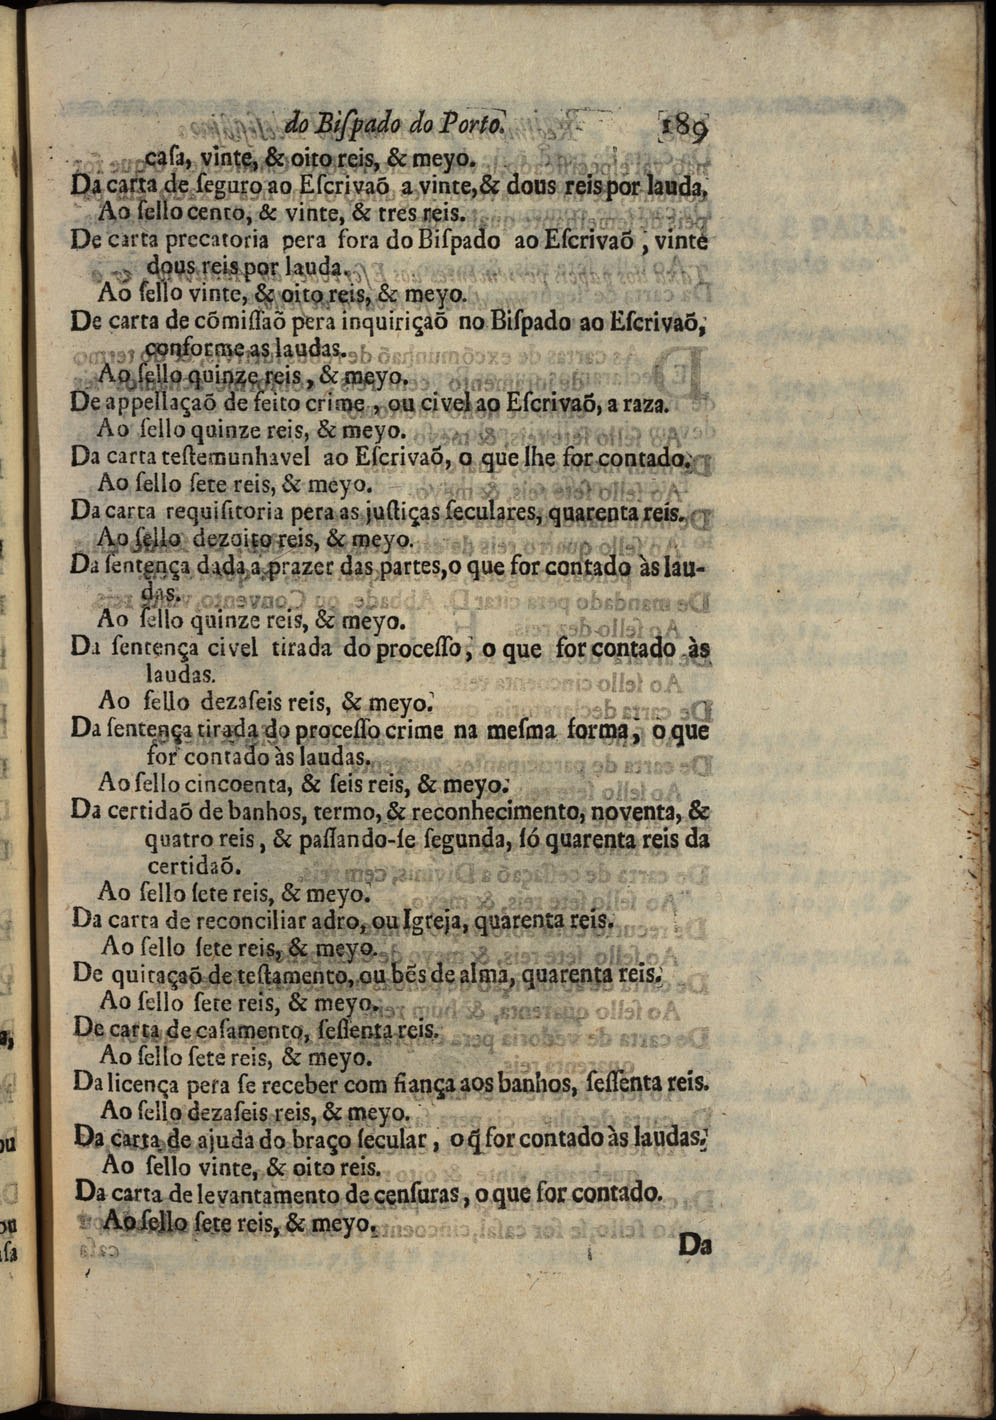 do Biſpado do Porto. 189
caſa, vinte, & oito reis, & meyo.
Da carta de ſeguro ao Eſcrivaõ a vinte, & dous reis por lauda,
Ao ſello cento, & vinte, & tres reis.
De carta precatoria pera fora do Biſpado ao Eſcrivaõ, vinte
dous reis por lauda.
Ao ſello vinte, & oito reis, & meyo.
De carta de cõmiſſaõ pera inquiriçaõ no Biſpado ao Eſcrivaõ,
conforme as laudas.
Ao ſello quinze reis, & meyo.
De appellaçaõ de feito crime, ou civel ao Eſcrivaõ, a raza.
Ao ſello quinze reis, & meyo.
Da carta teſtemunhavel ao Eſcrivaõ, o que lhe for contado.
Ao ſello ſete reis, & meyo.
Da carta requiſitoria pera as juſtiças ſeculares, quarenta reis.
Ao ſello dezoito reis, & meyo.
Da ſentença dada a prazer das partes, o que for contado às lau-
das.
Ao ſello quinze reis, & meyo.
Da ſentença civel tirada do proceſſo, o que for contado às
laudas.
Ao ſello dezaſeis reis, & meyo.
Da ſentença tirada do proceſſo crime na meſma forma, o que
for contado às laudas.
Ao ſello cincoenta, & ſeis reis, & meyo.
Da certidaõ de banhos, termo, & reconhecimento, noventa, &
quatro reis, & paſſando-ſe ſegunda, ſó quarenta reis da
certidaõ.
Ao ſello ſete reis, & meyo.
Da carta de reconciliar adro, ou Igreja, quarenta reis.
Ao ſello ſete reis, & meyo.
De quitaçaõ de teſtamento, ou bẽs de alma, quarenta reis.
Ao ſello ſete reis, & meyo.
De carta de caſamento, ſeſſenta reis.
Ao ſello ſete reis, & meyo.
Da licença pera ſe receber com fiança aos banhos, ſeſſenta reis.
Ao ſello dezaſeis reis, & meyo.
Da carta de ajuda do braço ſecular, o q̃ for contado às laudas.
Ao ſello vinte, & oito reis.
Da carta de levantamento de cenſuras, o que for contado.
Ao ſello ſete reis, & meyo.
Da